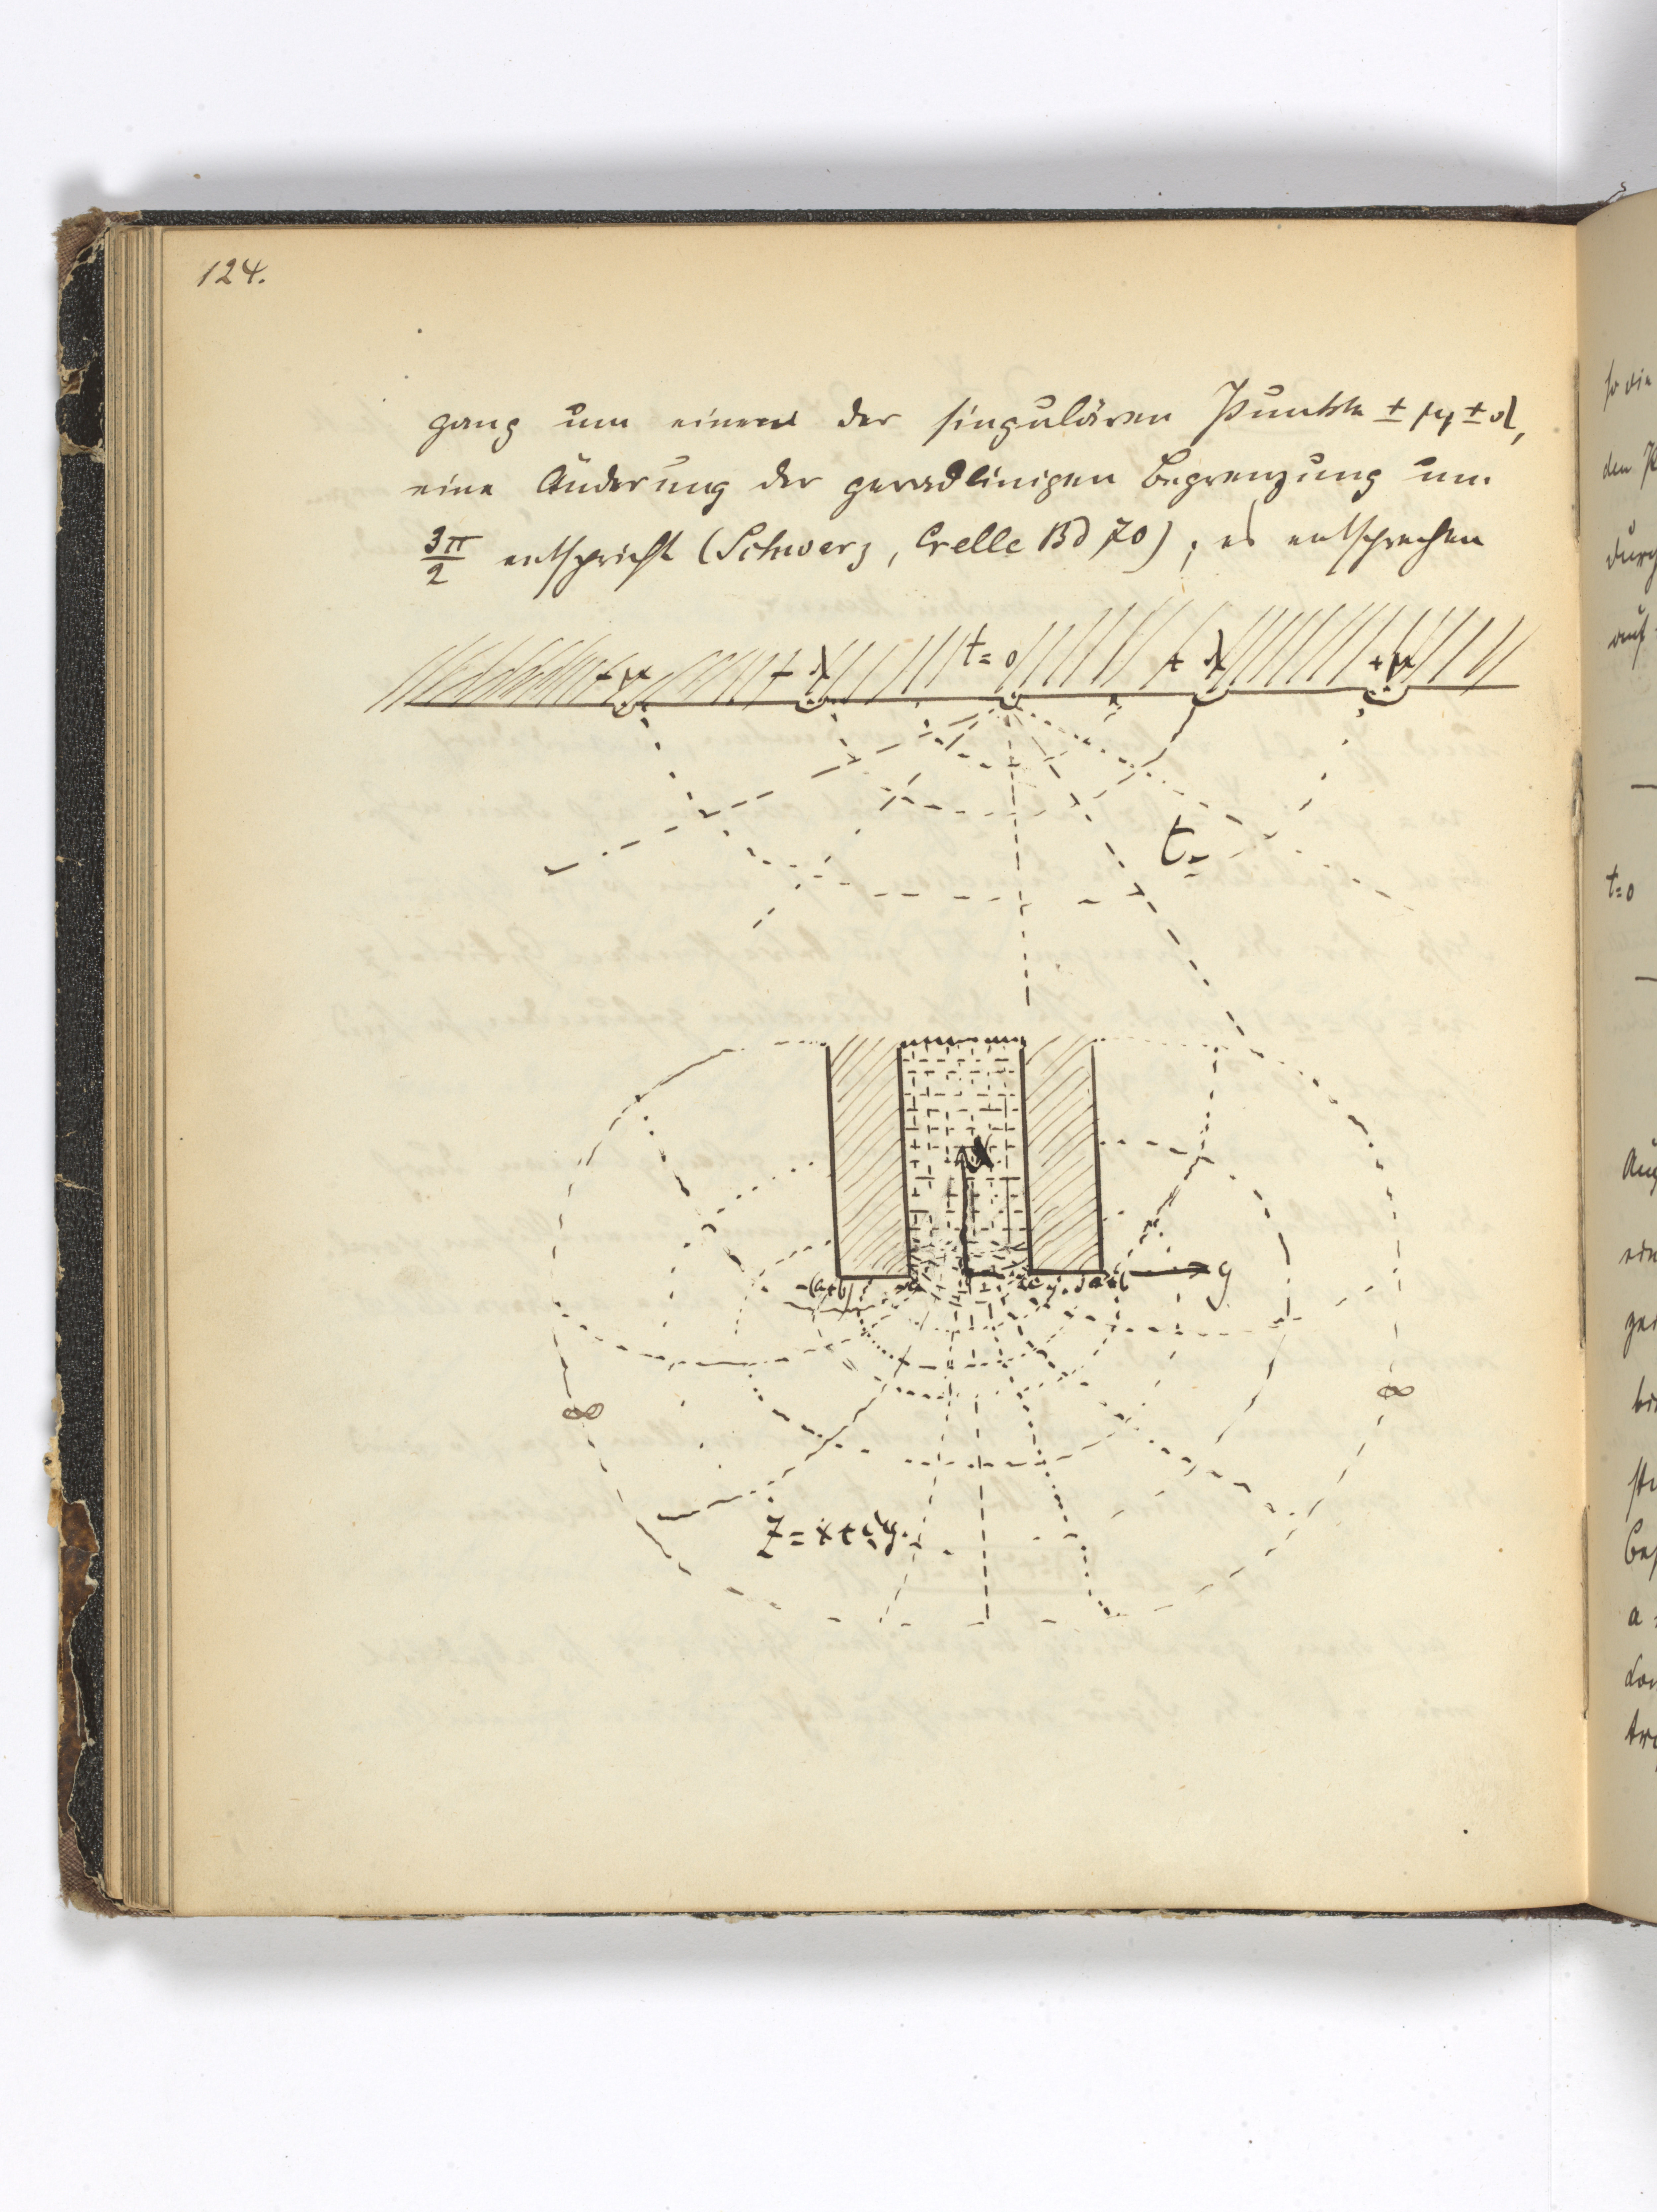 124.
gang um einen der singulären Punkte ± μ, ± λ,
eine Änderung der geradlinigen Begrenzung um
3π/2 entspricht (Schwarz, Crelle Bd 70); es entsprechen
-μ -λ t=0 +λ +μ
t
x
-(a+b) -a +a a+b y
∞ ∞
z = x+iy.
so die
den
durch
auf
t=0